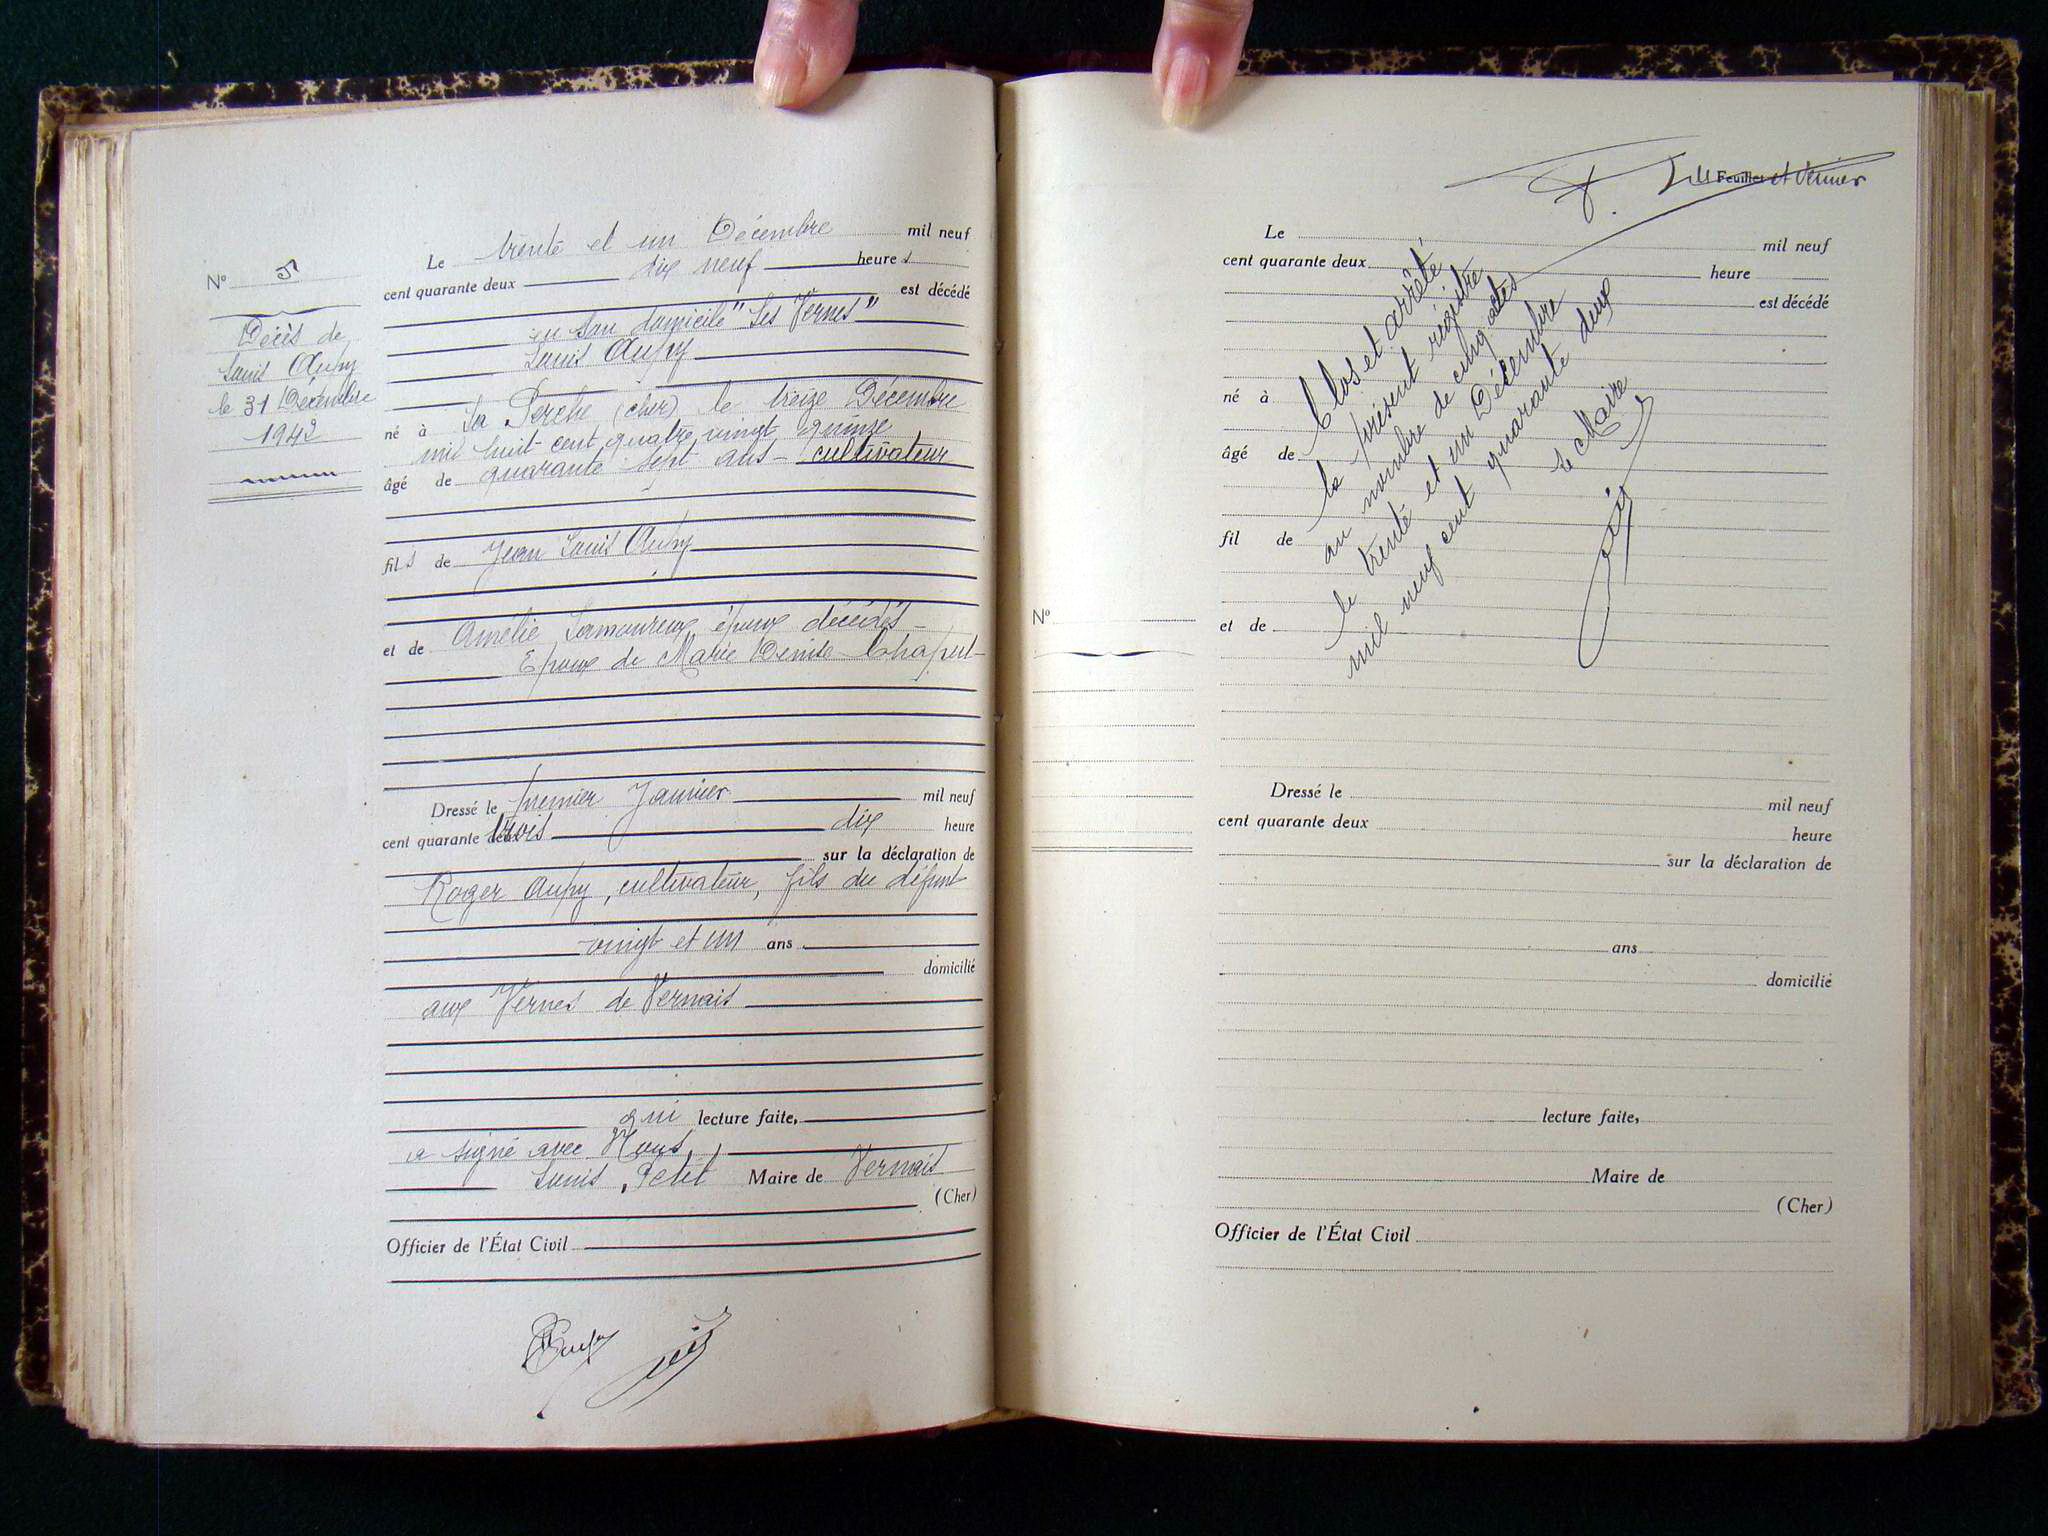 N° 5
Décès de
Louis Aupy
le 31 Décembre
1942
Le trente et un Décembre mil neuf
cent quarante deux dix neuf heures
est décédé
en son domicile "Les Vernes"
Louis Aupy
né à La Perche (cher) le treize Décembre
mil huit cent quatre vingt quinze
âgé de quarante sept ans - cultivateur
fils de Jean Louis Aupy
et de Amélie Lamoureux époux décédés -
Epoux de Marie Denise Chaput -
Dressé le premier Janvier mil neuf
cent quarante trois dix heure
sur la déclaration de
Roger Aupy, cultivateur, fils du défunt
vingt et un ans
domicilié
aux Vernes de Vernais
qui lecture faite,
a signé avec Nous,
Louis Petit Maire de Vernais
(Cher)
Officier de l'État Civil
Feuillet et dernier
Le mil neuf
cent quarante deux heure
est décédé
né à
âgé de
fil de
et de
Clos et arrêté
le présent régistre
au nombre de cinq actes
le trente et un Décembre
mil neuf cent quarante deux
Le Maire
N°
Dressé le mil neuf
cent quarante deux heure
sur la déclaration de
ans
domicilié
lecture faite,
Maire de
(Cher)
Officier de l'État Civil